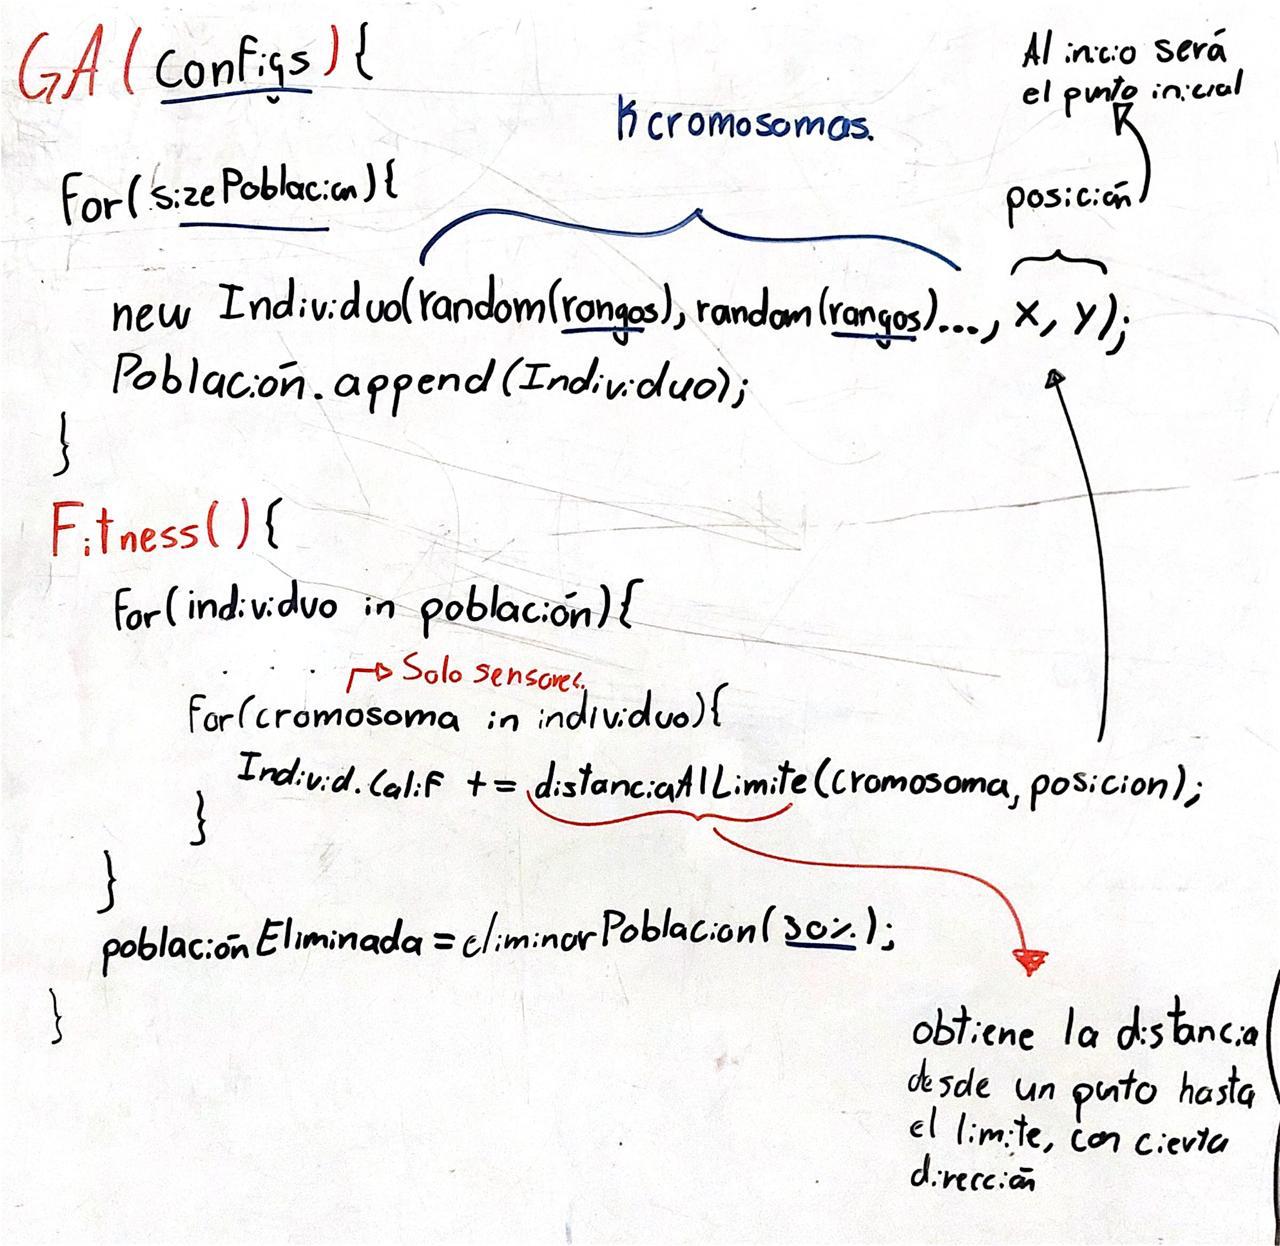 GA(Configs){
Al inicio será
el punto inicial
K cromosomas.
For(sizePoblacion){
posición
new Individuo(random(rangos), random(rangos)..., X, Y);
Población.append(Individuo);
}
Fitness(){
For(individuo in población){
Solo sensores.
For(cromosoma in individuo){
Individ.Calif += distanciaAlLimite(cromosoma, posicion);
}
}
poblaciónEliminada = eliminarPoblacion(30%);
}
obtiene la distancia
desde un punto hasta
el limite, con cierta
dirección